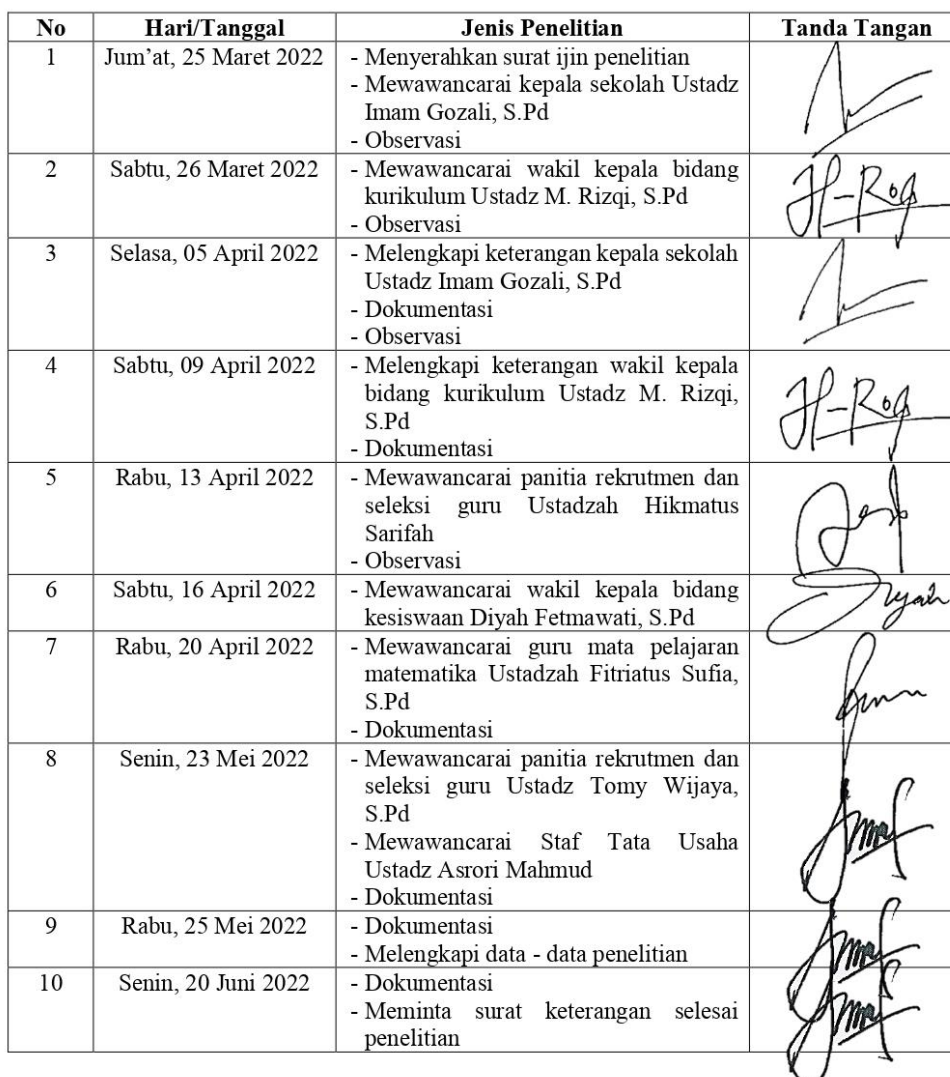 No Hari/Tanggal Jenis Penelitian Tanda Tangan
1 Jum’at, 25 Maret 2022 - Menyerahkan surat ijin penelitian
- Mewawancarai kepala sekolah Ustadz
Imam Gozali, S.Pd
- Observasi
2 Sabtu, 26 Maret 2022 - Mewawancarai wakil kepala bidang
kurikulum Ustadz M. Rizqi, S.Pd
- Observasi
3 Selasa, 05 April 2022 - Melengkapi keterangan kepala sekolah
Ustadz Imam Gozali, S.Pd
- Dokumentasi
- Observasi
4 Sabtu, 09 April 2022 - Melengkapi keterangan wakil kepala
bidang kurikulum Ustadz M. Rizqi,
S.Pd
- Dokumentasi
5 Rabu, 13 April 2022 - Mewawancarai panitia rekrutmen dan
seleksi guru Ustadzah Hikmatus
Sarifah
- Observasi
6 Sabtu, 16 April 2022 - Mewawancarai wakil kepala bidang
kesiswaan Diyah Fetmawati, S.Pd
7 Rabu, 20 April 2022 - Mewawancarai guru mata pelajaran
matematika Ustadzah Fitriatus Sufia,
S.Pd
- Dokumentasi
8 Senin, 23 Mei 2022 - Mewawancarai panitia rekrutmen dan
seleksi guru Ustadz Tomy Wijaya,
S.Pd
- Mewawancarai Staf Tata Usaha
Ustadz Asrori Mahmud
- Dokumentasi
9 Rabu, 25 Mei 2022 - Dokumentasi
- Melengkapi data - data penelitian
10 Senin, 20 Juni 2022 - Dokumentasi
- Meminta surat keterangan selesai
penelitian